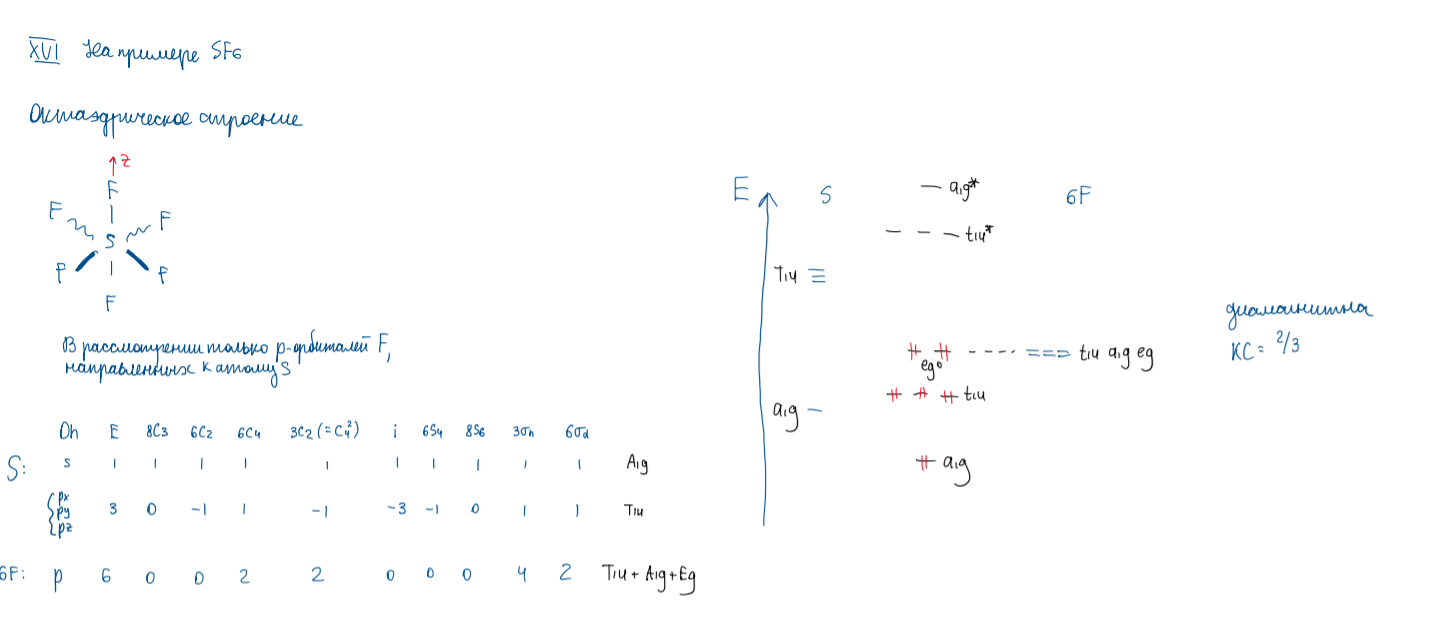 XVI На примере SF6
Октаэдрическое строение
z
F
F F
S
F F
F
В рассмотрении только p-орбиталей F,
направленных к атому S
Oh E 8C3 6C2 6C4 3C2 (=C4²) i 6S4 8S6 3σh 6σd
S: s 1 1 1 1 1 1 1 1 1 1 A1g
px
py 3 0 -1 1 -1 -3 -1 0 1 1 T1u
pz
6F: p 6 0 0 2 2 0 0 0 4 2 T1u + A1g + Eg
E S a1g* 6F
t1u*
T1u
диамагнитна
КС = 2/3
t1u a1g eg
eg⁰
t1u
a1g
a1g